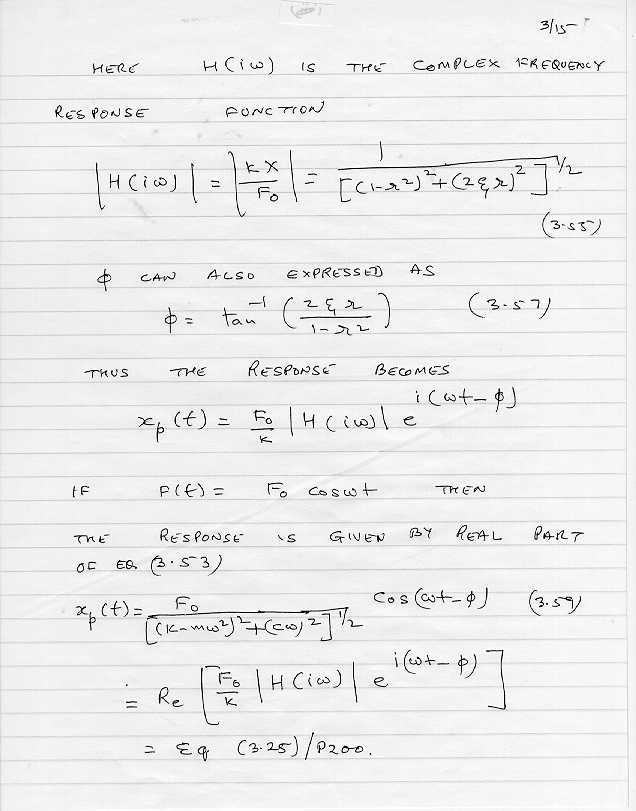 3/15
HERE H(iω) IS THE COMPLEX FREQUENCY
RESPONSE FUNCTION
|H(iω)| = |kX/F₀| = 1/[(1-r²)²+(2ξr)²]^1/2
(3.55)
φ CAN ALSO EXPRESSED AS
φ = tan⁻¹ (2ξr/1-r²) (3.57)
THUS THE RESPONSE BECOMES
xp(t) = F₀/k |H(iω)| e^i(ωt-φ)
IF F(t) = F₀ cosωt THEN
THE RESPONSE IS GIVEN BY REAL PART
OF EQ (3.53)
xp(t) = F₀/[(k-mω²)²+(cω)²]^1/2 cos(ωt-φ) (3.59)
= Re [F₀/k |H(iω)| e^i(ωt-φ)]
= Eq (3.25)/P200.